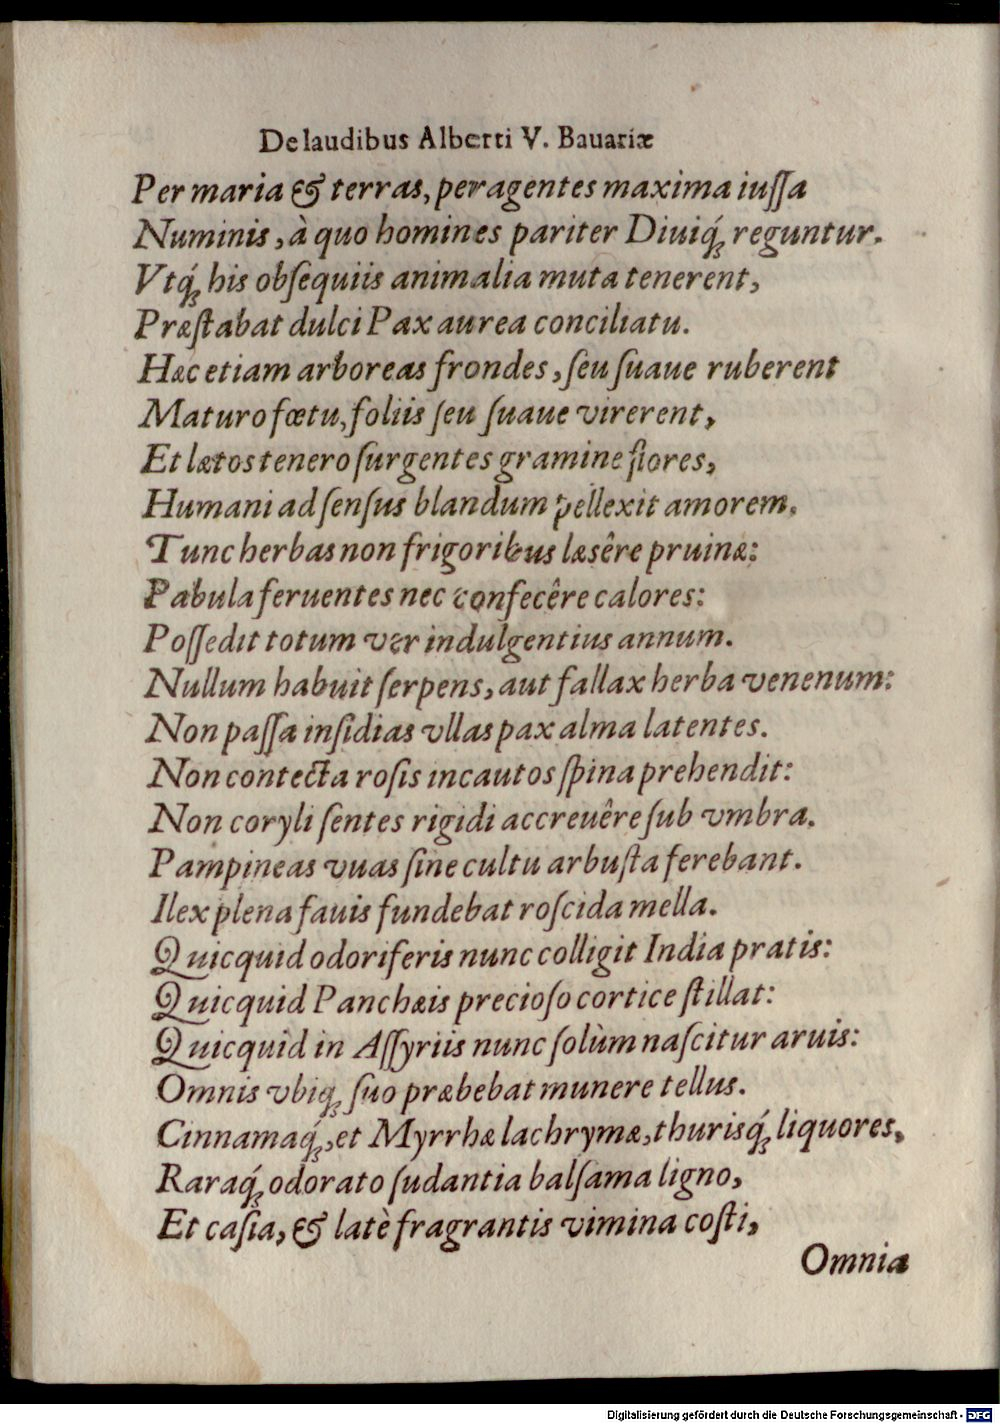 De laudibus Alberti V. Bauariæ
Per maria & terras, peragentes maxima iuſſa
Numinis, à quo homines pariter Diuiq́ꝫ reguntur.
Vtq́ꝫ his obſequiis animalia muta tenerent,
Præſtabat dulci Pax aurea conciliatu.
Hæc etiam arboreas frondes, ſeu ſuaue ruberent
Maturo fœtu, foliis ſeu ſuaue virerent,
Et lætos tenero ſurgentes gramine flores,
Humani ad ſenſus blandum pellexit amorem.
Tunc herbas non frigoribus læsêre pruinæ:
Pabula feruentes nec confecêre calores:
Poſſedit totum ver indulgentius annum.
Nullum habuit ſerpens, aut fallax herba venenum:
Non paſſa inſidias vllas pax alma latentes.
Non contecta roſis incautos ſpina prehendit:
Non coryli ſentes rigidi accreuêre ſub vmbra.
Pampineas vuas ſine cultu arbuſta ferebant.
Ilex plena fauis fundebat roſcida mella.
Quicquid odoriferis nunc colligit India pratis:
Quicquid Panchæis precioſo cortice ſtillat:
Quicquid in Aſſyriis nunc ſolùm naſcitur aruis:
Omnis vbiqꝫ ſuo præbebat munere tellus.
Cinnamaq́ꝫ, et Myrrhæ lachrymæ, thurisq́ꝫ liquores,
Raraq́ꝫ odorato ſudantia balſama ligno,
Et caſia, & latè fragrantis vimina coſti,
Omnia
Digitalisierung gefördert durch die Deutsche Forschungsgemeinschaft - DFG